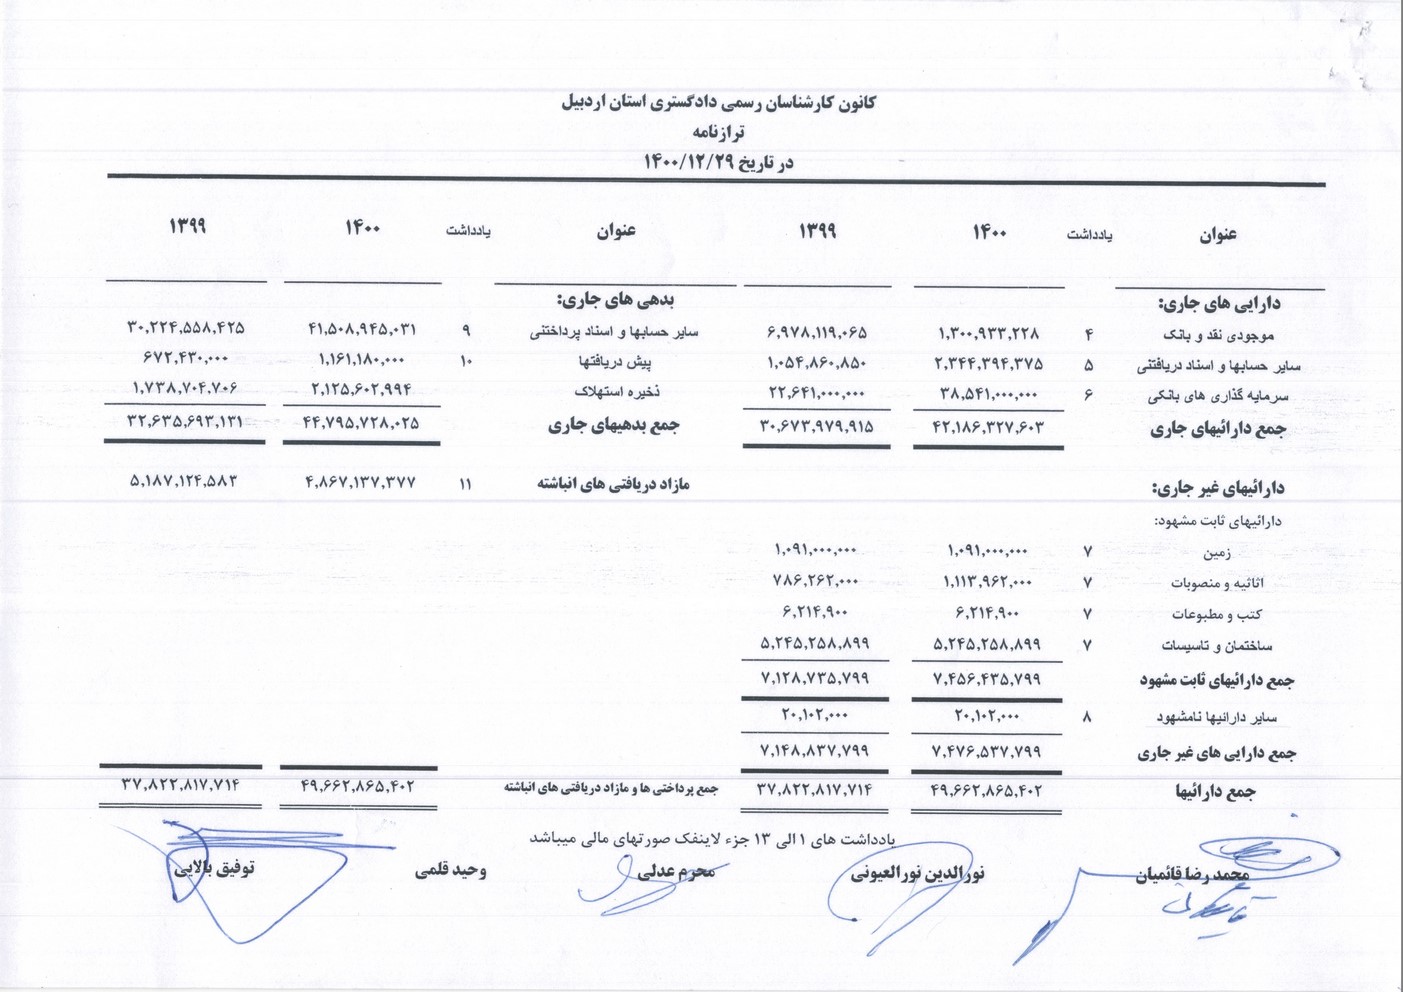 کانون کارشناسان رسمی دادگستری استان اردبیل
ترازنامه
در تاریخ ۱۴۰۰/۱۲/۲۹
عنوان یادداشت ۱۴۰۰ ۱۳۹۹ عنوان یادداشت ۱۴۰۰ ۱۳۹۹
دارایی های جاری: بدهی های جاری:
موجودی نقد و بانک ۴ ۱,۳۰۰,۹۳۳,۲۲۸ ۶,۹۷۸,۱۱۹,۰۶۵ سایر حسابها و اسناد پرداختنی ۹ ۴۱,۵۰۸,۹۴۵,۰۳۱ ۳۰,۲۲۴,۵۵۸,۴۲۵
سایر حسابها و اسناد دریافتنی ۵ ۲,۳۴۴,۳۹۴,۳۷۵ ۱,۰۵۴,۸۶۰,۸۵۰ پیش دریافتها ۱۰ ۱,۱۶۱,۱۸۰,۰۰۰ ۶۷۲,۴۳۰,۰۰۰
سرمایه گذاری های بانکی ۶ ۳۸,۵۴۱,۰۰۰,۰۰۰ ۲۲,۶۴۱,۰۰۰,۰۰۰ ذخیره استهلاک ۲,۱۲۵,۶۰۲,۹۹۴ ۱,۷۳۸,۷۰۴,۷۰۶
جمع دارائیهای جاری ۴۲,۱۸۶,۳۲۷,۶۰۳ ۳۰,۶۷۳,۹۷۹,۹۱۵ جمع بدهیهای جاری ۴۴,۷۹۵,۷۲۸,۰۲۵ ۳۲,۶۳۵,۶۹۳,۱۳۱
دارائیهای غیر جاری: مازاد دریافتی های انباشته ۱۱ ۴,۸۶۷,۱۳۷,۳۷۷ ۵,۱۸۷,۱۲۴,۵۸۳
دارائیهای ثابت مشهود:
زمین ۷ ۱,۰۹۱,۰۰۰,۰۰۰ ۱,۰۹۱,۰۰۰,۰۰۰
اثاثیه و منصوبات ۷ ۱,۱۱۳,۹۶۲,۰۰۰ ۷۸۶,۲۶۲,۰۰۰
کتب و مطبوعات ۷ ۶,۲۱۴,۹۰۰ ۶,۲۱۴,۹۰۰
ساختمان و تاسیسات ۷ ۵,۲۴۵,۲۵۸,۸۹۹ ۵,۲۴۵,۲۵۸,۸۹۹
جمع دارائیهای ثابت مشهود ۷,۴۵۶,۴۳۵,۷۹۹ ۷,۱۲۸,۷۳۵,۷۹۹
سایر دارائیها نامشهود ۸ ۲۰,۱۰۲,۰۰۰ ۲۰,۱۰۲,۰۰۰
جمع دارایی های غیر جاری ۷,۴۷۶,۵۳۷,۷۹۹ ۷,۱۴۸,۸۳۷,۷۹۹
جمع دارائیها ۴۹,۶۶۲,۸۶۵,۴۰۲ ۳۷,۸۲۲,۸۱۷,۷۱۴ جمع پرداختی ها و مازاد دریافتی های انباشته ۴۹,۶۶۲,۸۶۵,۴۰۲ ۳۷,۸۲۲,۸۱۷,۷۱۴
یادداشت های ۱ الی ۱۳ جزء لاینفک صورتهای مالی میباشد
محمد رضا قائمیان نورالدین نورالعیونی محرم عدلی وحید قلمی توفیق بالایی